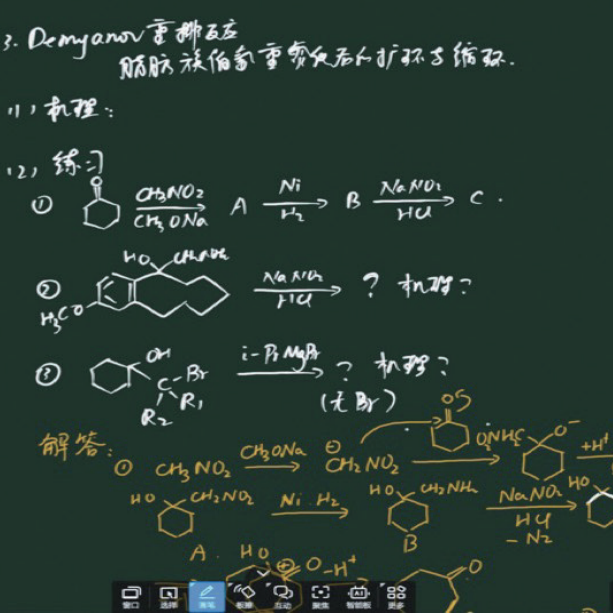 3. Demyanov重排反应
脂肪族伯氨重氮化后的扩环与缩环.
(1) 机理:
(2) 练习
① O CH3NO2 CH3ONa A Ni H2 B NaNO2 HCl C.
② HO CH2NH2 H3CO NaNO2 HCl ? 机理?
③ OH C-Br R1 R2 i-PrMgBr ? 机理?
(无Br)
解答:
① CH3NO2 CH3ONa ⊖ CH2NO2 O O2NHC O⁻ +H⁺
HO CH2NO2 Ni H2 HO CH2NH2 NaNO2 HCl -N2 HO
A. B
HO ⊕ O -H⁺ O
窗口 选择 笔 板擦 互动 聚焦 智能板 更多